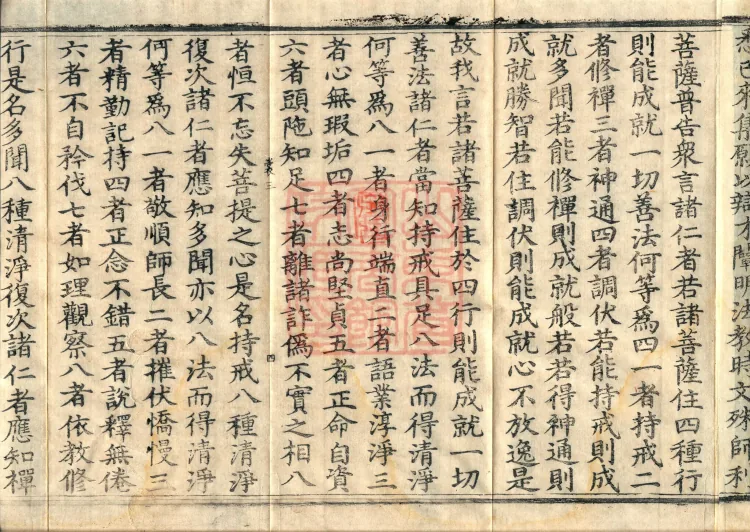 悉已來集願以辯才闡明法教時文殊師利
菩薩普告衆言諸仁者若諸菩薩住四種行
則能成就一切善法何等為四一者持戒二
者修禪三者神通四者調伏若能持戒則成
就多聞若能修禪則成就般若若得神通則
成就勝智若住調伏則能成就心不放逸是
故我言若諸菩薩住於四行則能成就一切
善法諸仁者當知持戒具足八法而得清淨
何等為八一者身行端直二者語業淳淨三
者心無瑕垢四者志尚堅貞五者正命自資
六者頭陁知足七者離諸詐偽不實之相八
三 四
者恒不忘失菩提之心是名持戒八種清淨
復次諸仁者應知多聞亦以八法而得清淨
何等為八一者敬順師長二者摧伏憍慢三
者精勤記持四者正念不錯五者說釋無倦
六者不自矜伐七者如理觀察八者依教修
行是名多聞八種清淨復次諸仁者應知禪